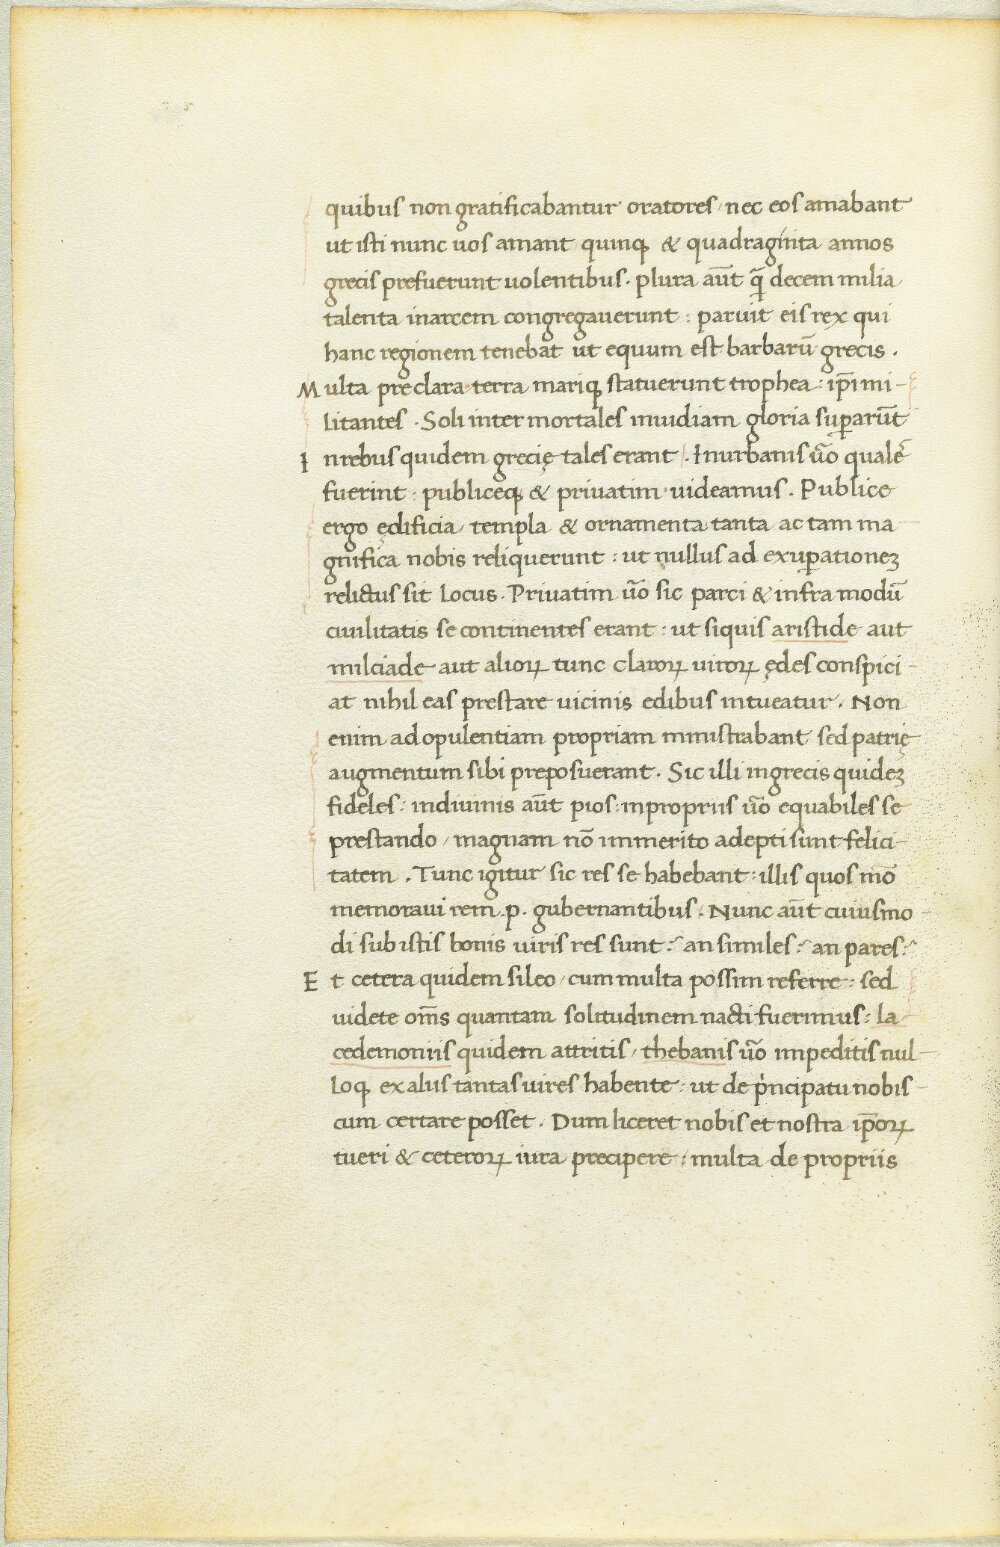 quibus non gratificabantur oratores / nec eos amabant
ut isti nunc uos amant quinqꝫ & quadraginta annos
grecis prefuerunt uolentibus. plura aūt q̄ decem milia
talenta in arcem congregauerunt : paruit eis rex qui
hanc regionem tenebat ut equum est barbarū grecis .
Multa preclara terra mariqꝫ statuerunt trophea : ip̄i mi-
litantes . Soli inter mortales inuidiam gloria suꝑarūt
In rebus quidem grecię tales erant . In urbanis ūo qualē
fuerint : publiceqꝫ & priuatim uideamus . Publice
ergo ędificia / templa & ornamenta tanta ac tam ma
gnifica nobis reliquerunt : ut nullus ad exuꝑationeꝫ
relictus sit locus . Priuatim ūo sic parci & infra modū
ciuilitatis se continentes erant : ut siquis aristide aut
milciade aut alioꝝ tunc claroꝝ uiroꝝ ędes conspici-
at nihil eas prestare uicinis edibus intueatur . Non
enim ad opulentiam propriam ministrabant sed patrię
augmentum sibi preposuerant . Sic illi in grecis quideꝫ
fideles : in diuinis aūt pios : in propriis ūo equabiles se
prestando / magnam nō immerito adepti sunt felici-
tatem . Tunc igitur sic res se habebant : illis quos mō
memoraui rem .p. gubernantibus . Nunc aūt cuiusmo
di sub istis bonis uiris res sunt ? an similes ? an pares ?
Et cetera quidem sileo / cum multa possim referre : sed
uidete om̄s quantam solitudinem nacti fuerimus : la-
cedemoniis quidem attritis / thebanis ūo impeditis nul-
loqꝫ ex aliis tantas uires habente : ut de pͥncipatu nobis-
cum certare posset . Dum liceret nobis et nostra ip̄oꝝ
tueri & ceteroꝝ iura precipere : multa de propriis